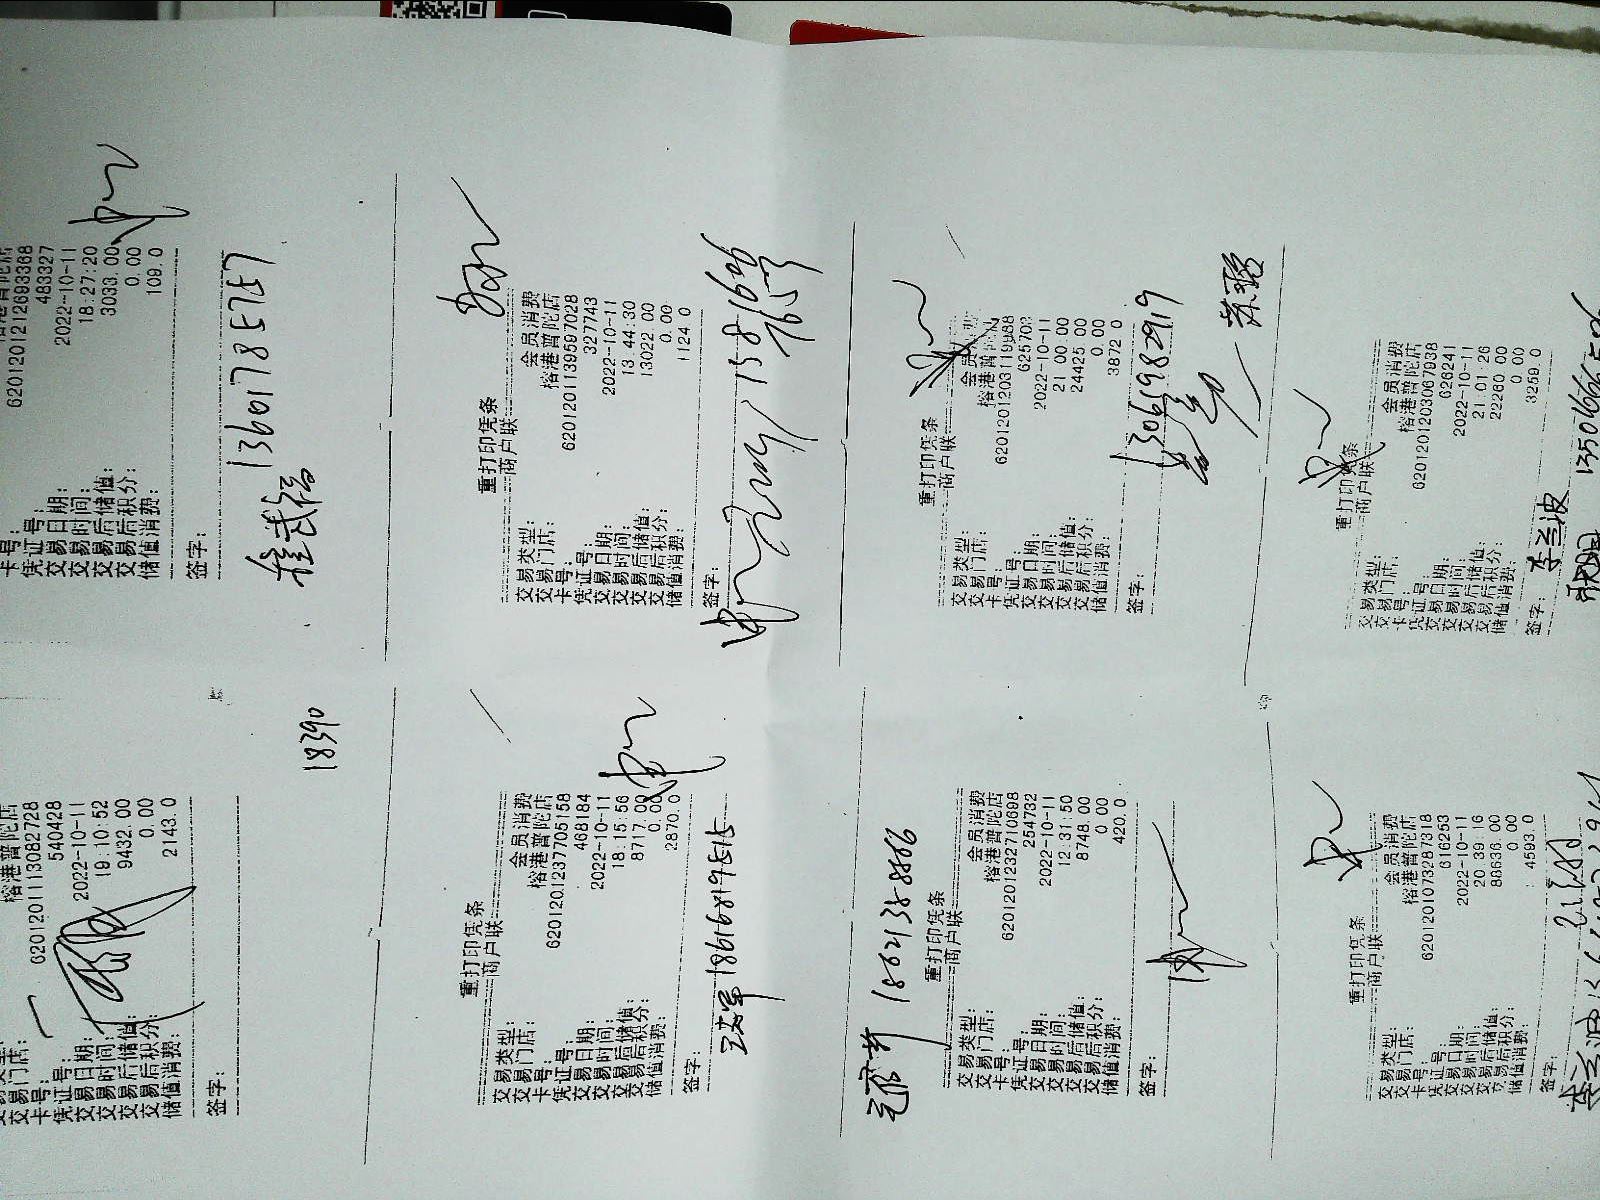 榕港普陀店
卡号: 6201201212693368
凭证号: 483327
交易日期: 2022-10-11
交易时间: 18:27:20
交易后储值: 3033.00
交易后积分: 0.00
储值消费: 109.0
签字:
13601785757
重打印凭条
商户联
交易类型: 会员消费
交易门店: 榕港普陀店
卡号: 6201201139597028
凭证号: 327743
交易日期: 2022-10-11
交易时间: 13:44:30
交易后储值: 13022.00
交易后积分: 0.00
储值消费: 1124.0
签字:
重打印凭条
商户联
交易类型: 会员消费
交易门店: 榕港普陀店
卡号: 6201201203119988
凭证号: 625702
交易日期: 2022-10-11
交易时间: 21 00:00
交易后储值: 24425 00
交易后积分: 0.00
储值消费: 3872 0
签字:
13061982919
重打印凭条
商户联
交易类型: 会员消费
交易门店: 榕港普陀店
卡号: 6201201203067938
凭证号: 626241
交易日期: 2022-10-11
交易时间: 21 01 26
交易后储值: 22260 00
交易后积分: 0 00
储值消费: 3259.0
签字: 李兰波
榕港普陀店
卡号: 6201201113082728
凭证号: 540428
交易日期: 2022-10-11
交易时间: 19:10:52
交易后储值: 9432.00
交易后积分: 0.00
储值消费: 2143.0
签字:
18390
重打印凭条
商户联
交易类型: 会员消费
交易门店: 榕港普陀店
卡号: 6201201237705158
凭证号: 468184
交易日期: 2022-10-11
交易时间: 18:15:56
交易后储值: 8717.00
交易后积分: 0.00
储值消费: 2870.0
签字:
18616819515
18621388866
重打印凭条
商户联
交易类型: 会员消费
交易门店: 榕港普陀店
卡号: 6201201232710698
凭证号: 254732
交易日期: 2022-10-11
交易时间: 12:31:50
交易后储值: 8748.00
交易后积分: 0 00
储值消费: 420.0
签字:
重打印凭条
商户联
交易类型: 会员消费
交易门店: 榕港普陀店
卡号: 6201201073287318
凭证号: 616253
交易日期: 2022-10-11
交易时间: 20 39 16
交易后储值: 88636.00
交易后积分: 0 00
储值消费: 4593.0
签字: